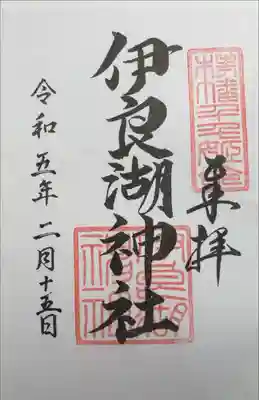 奉拝
伊良湖神社
令和五年二月十五日